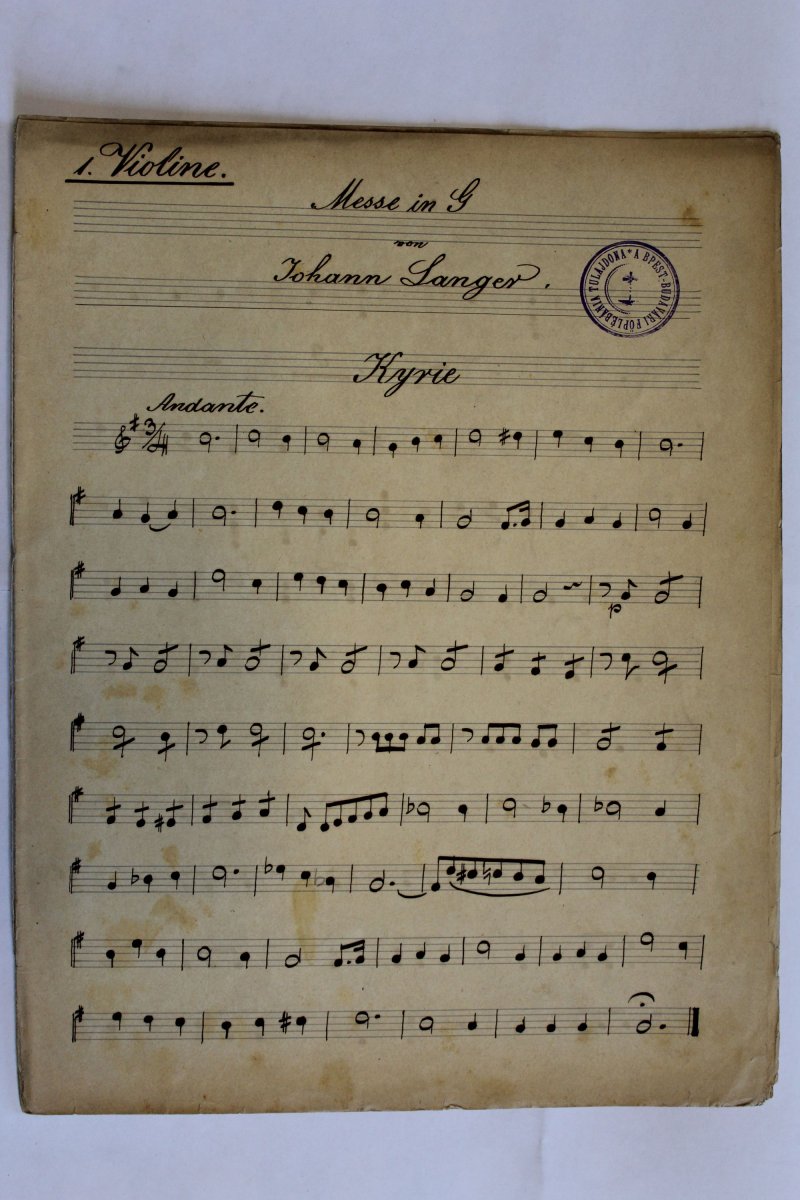 1. Violine.
Messe in G
von
Johann Langer.
* A BPEST-BUDAVÁRI FŐPLÉBÁNIA TULAJDONA
Kyrie
Andante.
3/4
p